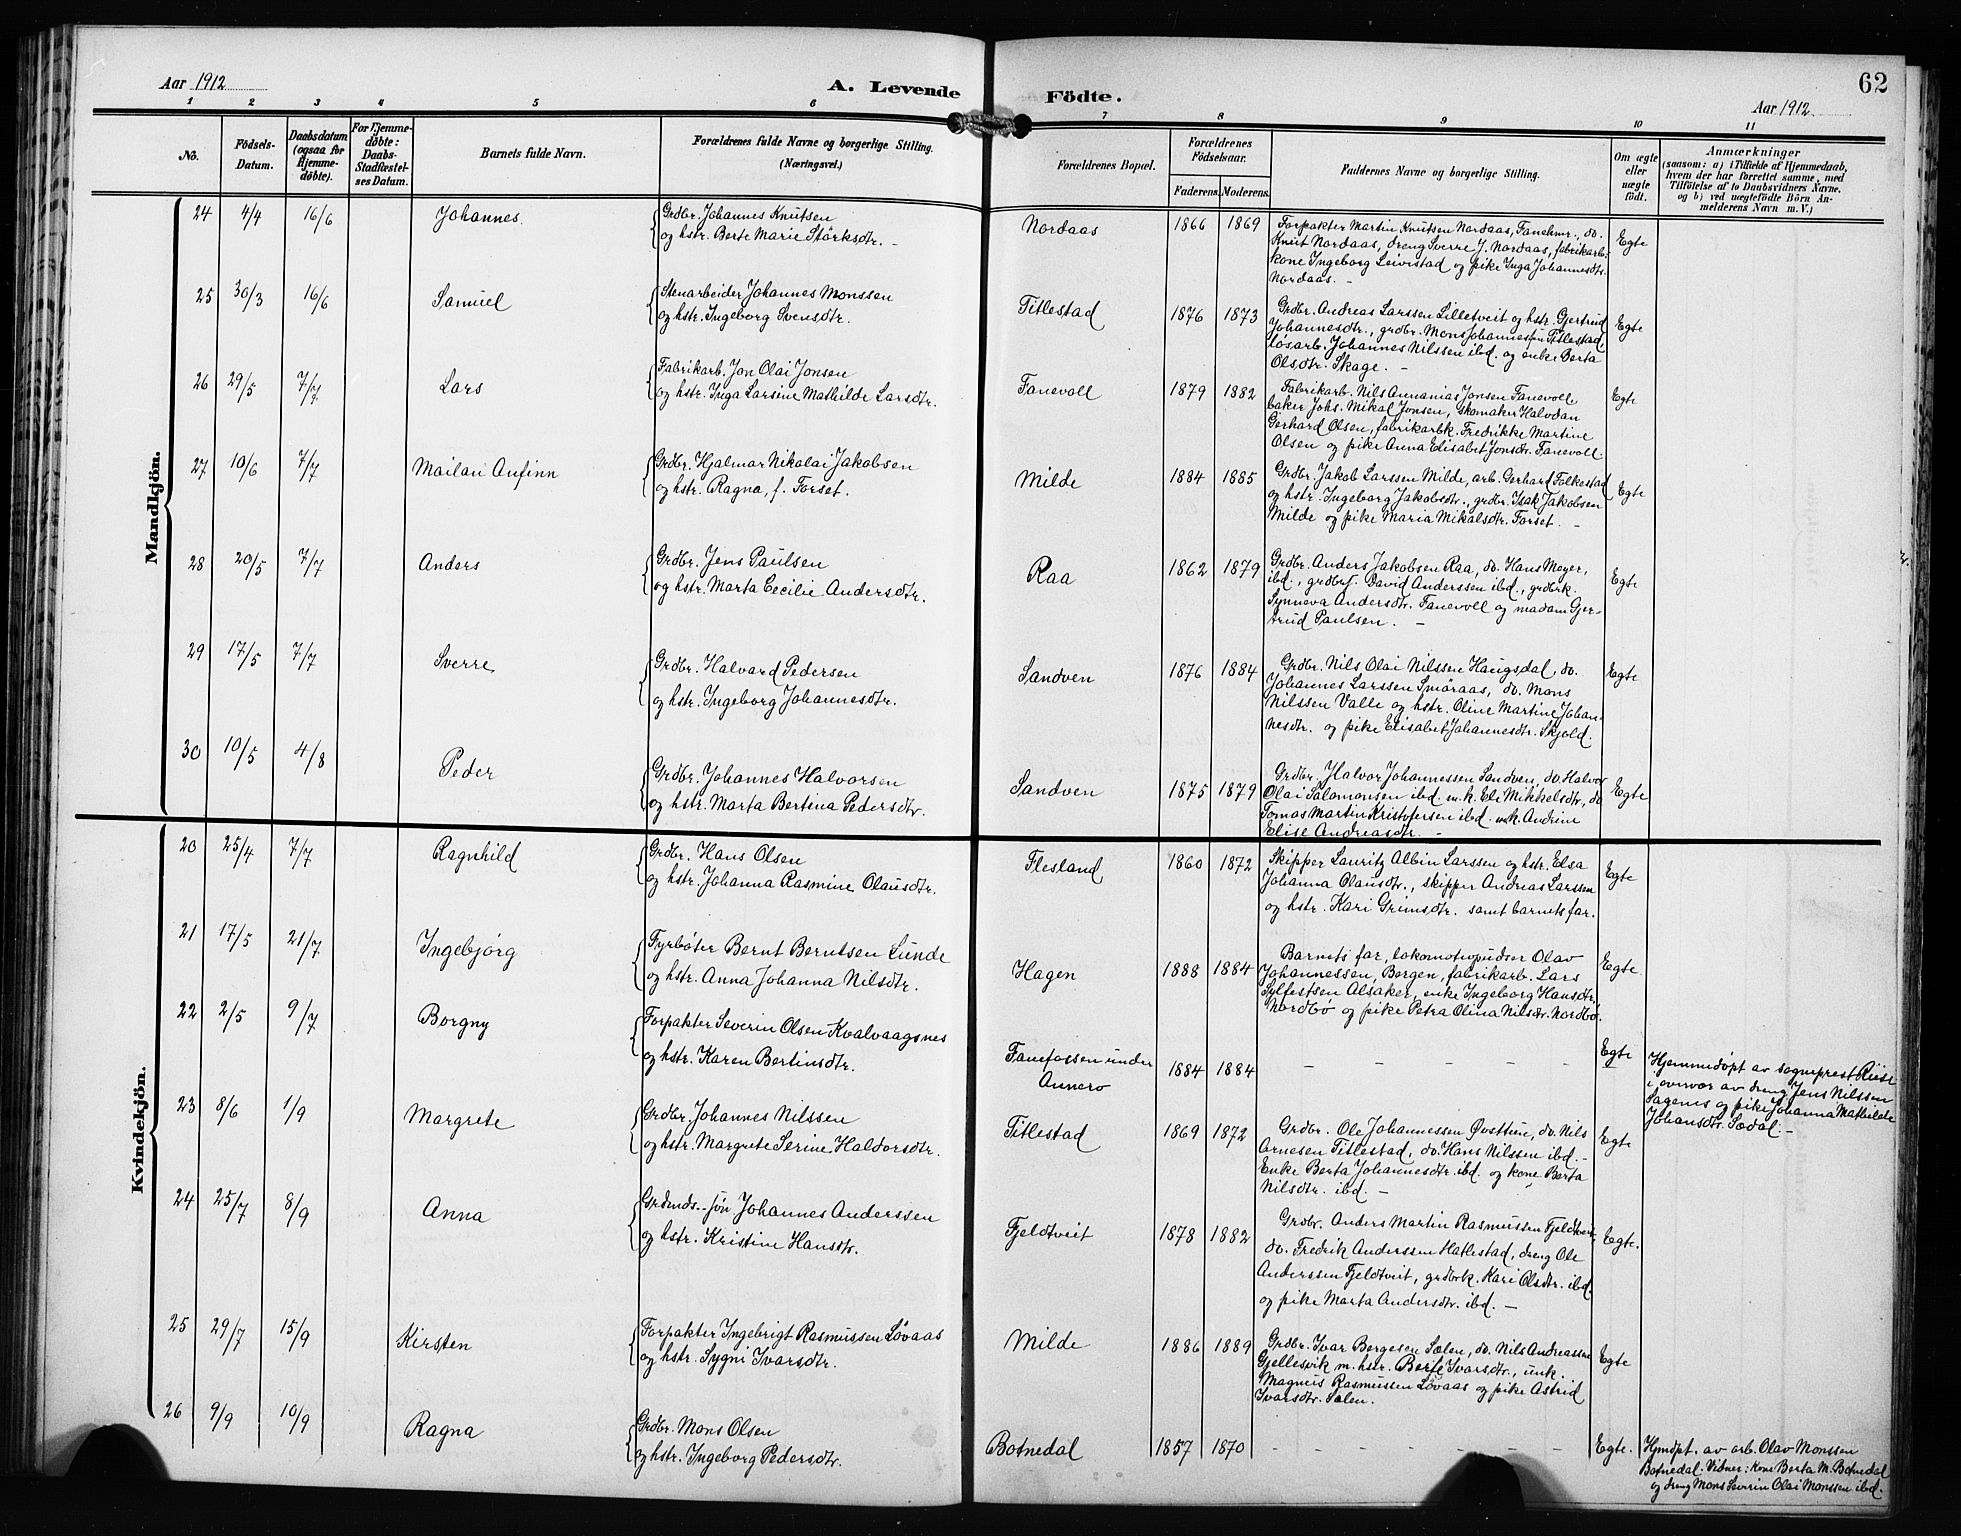 Aar 1912
A. Levende
Födte.
62
Aar 1912
1 2 3 4 5 6 7 8 9 10 11
No.
Födsels-
Datum.
Daabsdatum
(ogsaa for
Hjemme-
döbte).
For Hjemme-
döbte:
Daabs-
Stadfæstel-
ses Datum.
Barnets fulde Navn.
Forældrenes fulde Navne og borgerlige Stilling.
(Næringsvei.)
Forældrenes Bopæl.
Forældrenes
Födselsaar.
Faderens. Moderens.
Faddernes Navne og borgerlige Stilling.
Om ægte
eller
uægte
födt.
Anmærkninger
(saasom: a) i Tilfælde af Hjemmedaab,
hvem der har forrettet samme, med
Tilföielse af to Daabsvidners Navne.
og b) ved uægtefödte Börn An-
melderens Navn m. V.)
Mandkjön.
24 4/4 16/6 Johannes. Grdbr. Johannes Knutsen
og hstr. Berte Marie Størksdtr. -
Nordaas 1866 1869
Forpakter Martin Knutsen Nordaas, Fanehmr., do.
Knut Nordaas, dreng Sverre J. Nordaas, fabrikarb.
kone Ingeborg Leivestad og pike Inga Johannesdtr.
Nordaas. -
Egte
25 30/3 16/6 Samuel Stenarbeider Johannes Monssen
og hstr. Ingeborg Svensdtr.
Titlestad 1876 1873
Grdbr. Andreas Larssen Lilletveit og hstr. Gjertrud
Johannesdtr., grdbr. Mons Johannessen Titlestad,
løsarb. Johannes Nilssen ibd. og enke Berta
Olsdtr. Skage. -
Egte
26 29/5 7/7 Lars Fabrikarb. Jon Olai Jonsen
og hstr. Inga Larsine Mathilde Larsdtr.
Fanevoll 1879 1882
Fabrikarb. Nils Annanias Jonsen Fanevoll
baker Johs. Mikal Jonsen, skomaker Halvdan
Gerhard Olsen, fabrikarbk. Fredrikke Martine
Olsen og pike Anna Elisabet Jonsdtr. Fanevoll.
Egte
27 10/6 7/7 Mailan Anfinn Grdbr. Hjalmar Nikolai Jakobsen
og hstr. Ragna, f. Forset.
Milde 1884 1885
Grdbr. Jakob Larssen Milde, arb. Gerhard Folkestad
og hstr. Ingeborg Jakobsdtr., grdbr. Isak Jakobsen
Milde og pike Maria Mikalsdtr. Forset. -
Egte
28 20/5 7/7 Anders Grdbr. Jens Paulsen
og hstr. Marta Cecilie Andersdtr.
Raa 1862 1879
Grdbr. Anders Jakobsen Raa, do. Hans Meyer,
ibd., grdbrs. David Anderssen ibd., grdbrk.
Synneva Andersdtr. Fanevoll og madam Gjer-
trud Paulsen. -
Egte
29 17/5 7/7 Sverre Grdbr. Halvard Pedersen
og hstr. Ingeborg Johannesdtr.
Sandven 1876 1884
Grdbr. Nils Olai Nilssen Haugsdal, do.
Johannes Larssen Smøraas, do. Mons
Nilssen Valle og hstr. Oline Martine Johan-
nesdtr. og pike Elisabet Johannesdtr. Skjold.
Egte
30 10/5 4/8 Peder Grdbr. Johannes Halvorsen
og hstr. Marta Bertina Pedersdtr.
Sandven 1875 1879
Grdbr. Halvor Johannessen Sandven, do. Halvor
Olai Salomonsen ibd. m. k. Eli Mikkelsdtr, do
Tomas Martin Kristofersen ibd. m.k. Andrine
Elise Andreasdtr. -
Egte
Kvindekjön.
20 25/4 7/7 Ragnhild Grdbr. Hans Olsen
og hstr. Johanna Rasmine Olausdtr.
Flesland 1860 1872
Skipper Lauritz Albin Larssen og hstr. Elsa
Johanna Olausdtr., skipper Andreas Larssen
og hstr. Kari Grimsdtr. samt barnets far.
Egte
21 17/5 21/7 Ingebjørg Fyrbøter Bernt Berntsen Lunde
og hstr. Anna Johanna Nilsdtr.
Hagen 1888 1884
Barnets far, lokomotivpudser Olav
Johannessen, Bergen, fabrikarb. Lars
Sylfestsen Alsaker, enke Ingeborg Hansdtr.
Nordbø og pike Petra Olina Nilsdtr. Nordbø.
Egte
22 2/5 9/7 Borgny Forpakter Severin Olsen Kvalvaagsnes
og hstr. Karen Bertinsdtr.
Fanefossen under
Annerø
1884 1884 - - - - - Egte
Hjemmedøpt av sogneprest Riise
i overvær av dreng Jens Nilssen
Sagenes og pike Johanna Mathilde
Johansdtr. Sædal. -
23 8/6 1/9 Margrete Grdbr. Johannes Nilssen
og hstr. Margrete Serine Haldorsdtr.
Titlestad 1869 1872
Grdbr. Ole Johannessen Østtun, do. Nils
Arnesen Titlestad, do. Hans Nilssen ibd. -
Enke Berta Johannesdtr. ibd. og kone Berta
Nilsdtr. ibd. -
Egte
24 25/7 8/9 Anna Grdmds.-søn Johannes Anderssen
og hstr. Kristine Hansdtr.
Fjeldtveit 1878 1882
Grdbr. Anders Martin Rasmussen Fjeldtveit,
do. Fredrik Anderssen Hatlestad, dreng Ole
Anderssen Fjeldtveit, grdbrk. Kari Olsdtr. ibd.
og pike Marta Andersdtr. ibd. -
Egte.
25 29/7 15/9 Kirsten Forpakter Ingebrigt Rasmussen Løvaas
og hstr. Sygni Ivarsdtr.
Milde 1886 1889
Grdbr. Ivar Bergesen Sælen, do. Nils Andreassen
Gjellesvik m. hstr. Berte Ivarsdtr., unk.
Magnus Rasmussen Løvaas og pike Astrid
Ivarsdtr. Sælen.
Egte
26 9/9 10/9 Ragna Grdbr. Mons Olsen
og hstr. Ingeborg Pedersdtr.
Botnedal 1857 1870 - - - - - - - Egte.
Hjmdpt. av arb. Olav Monssen
Botnedal. Vidner: Kone Berta M. Botnedal
og dreng Mons Severin Olai Monssen ibd.